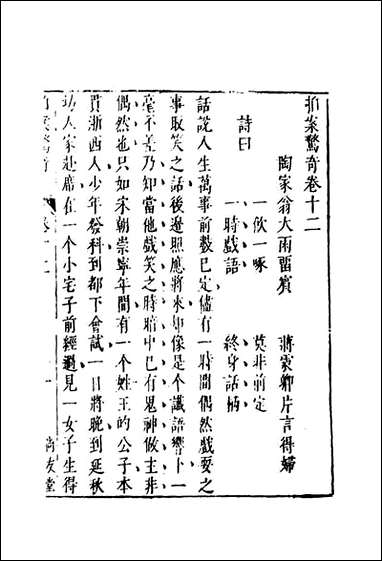 拍案驚奇卷十二
陶家翁大雨留賓 蔣震卿片言得婦
詩曰
一飲一啄 莫非前定
一時戲語 終身話柄
話說人生萬事前數已定儘有一時間偶然戲耍之
事取笑之話後邊照應將來却像是个讖語響卜一
毫不差乃知當他戲笑之時暗中已有鬼神做主非
偶然也只如宋朝崇寧年間有一个姓王的公子本
貫浙西人少年發科到都下會試一日將晚到延秋
坊人家赴席在一个小宅子前經過見一女子生得
拍案驚奇 卷十二 一 尚友堂